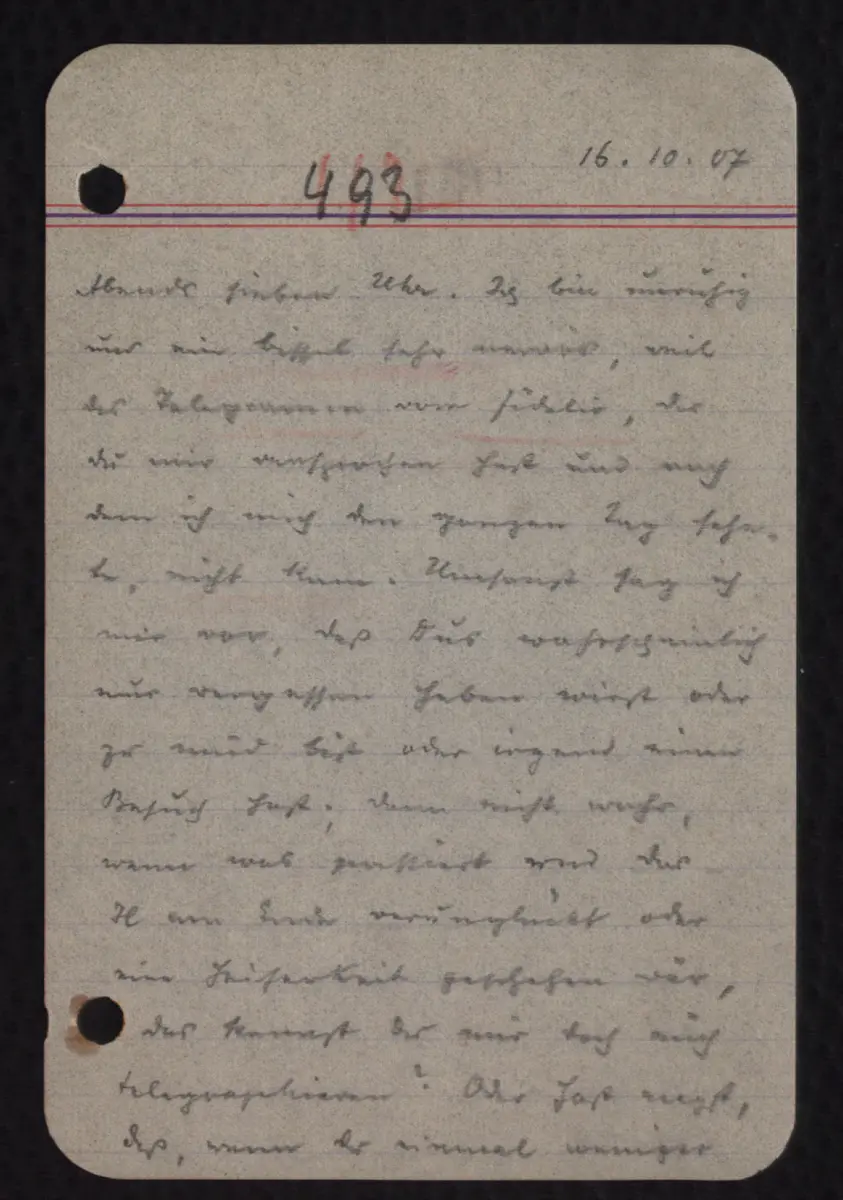 16. 10. 07
493
Abends sieben Uhr. Ich bin unruhig
und ein bissel sehr nervös, weil
das Telegramm vom Fidelio, das
du mir versprochen hast und nach
dem ich mich den ganzen Tag sehn-
te, nicht kam. Umsonst sag ich
mir vor, daß Dus wahrscheinlich
nur vergessen haben wirst oder
zu müd bist oder irgend einen
Besuch hast; denn nicht wahr,
wenn was passiert und das
H am Ende verunglückt oder
eine Heiserkeit geschehen wär,
das könntst Du mir doch auch
telegraphieren? Oder hast angst,
daß, wenn Du einmal weniger